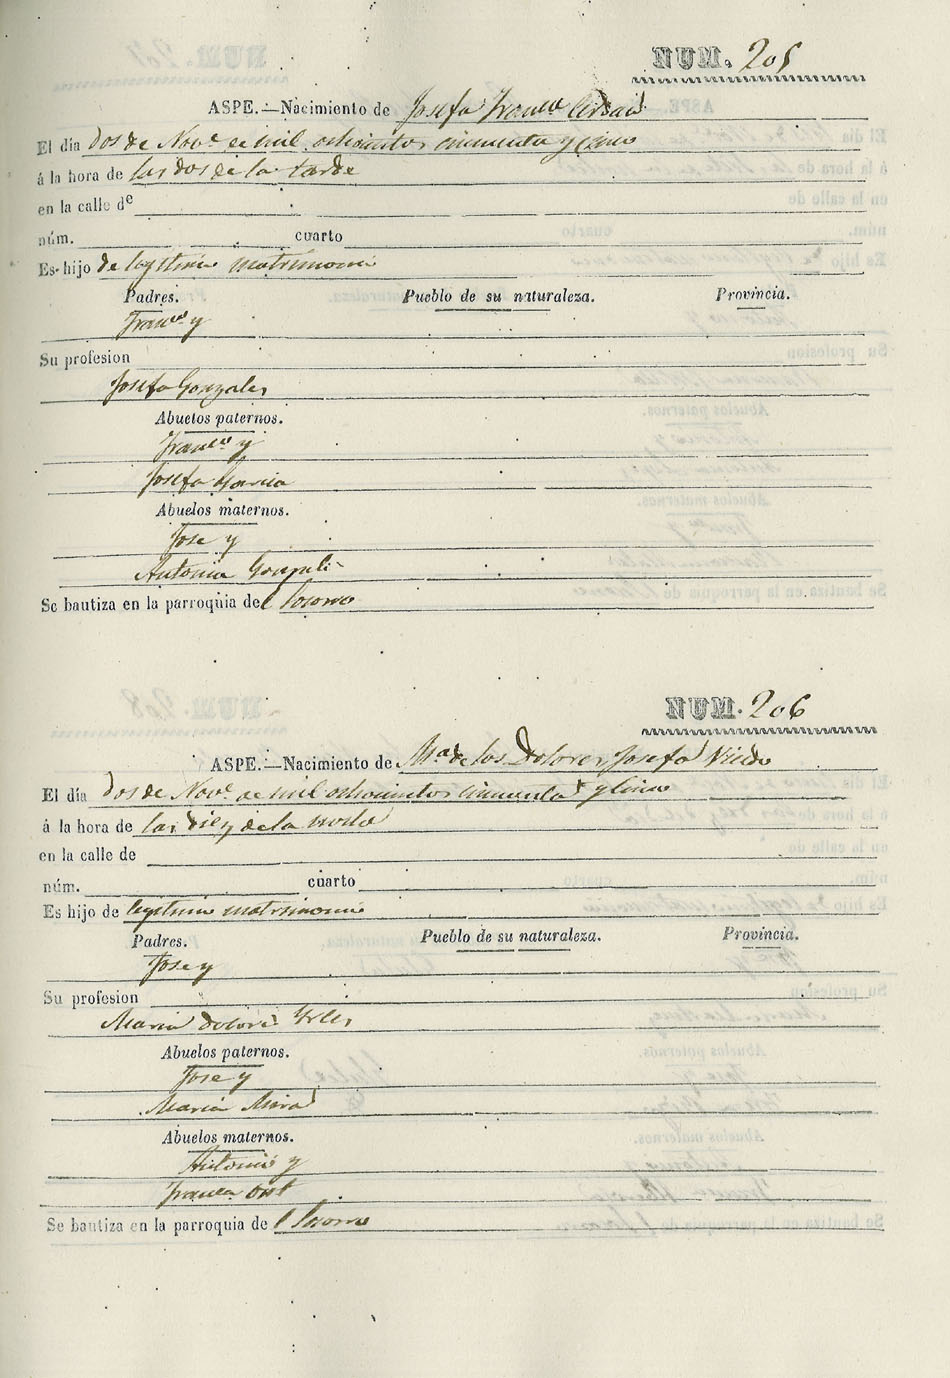 NUM. 205
ASPE.—Nacimiento de Josefa Franca
El día dos de Nove. de mil ochocientos cincuenta y cinco
á la hora de las dos de la tarde
en la calle de
núm. cuarto
Es hijo de legitimo matrimonio
Padres. Pueblo de su naturaleza. Provincia.
Franco y
Su profesion
Josefa Gonzales
Abuelos paternos.
Franco y
Josefa Garcia
Abuelos maternos.
Jose y
Antonia
Se bautiza en la parroquia del Socorro
NUM. 206
ASPE.—Nacimiento de Ma de los Dolores Josefa
El día dos de Nove. de mil ochocientos cincuenta y cinco
á la hora de las diez de la noche
en la calle de
núm. cuarto
Es hijo de legitimo matrimonio
Padres. Pueblo de su naturaleza. Provincia.
Jose y
Su profesion
Maria Dolores
Abuelos paternos.
Jose y
Maria Mira
Abuelos maternos.
Antonio y
Franca
Se bautiza en la parroquia del Socorro